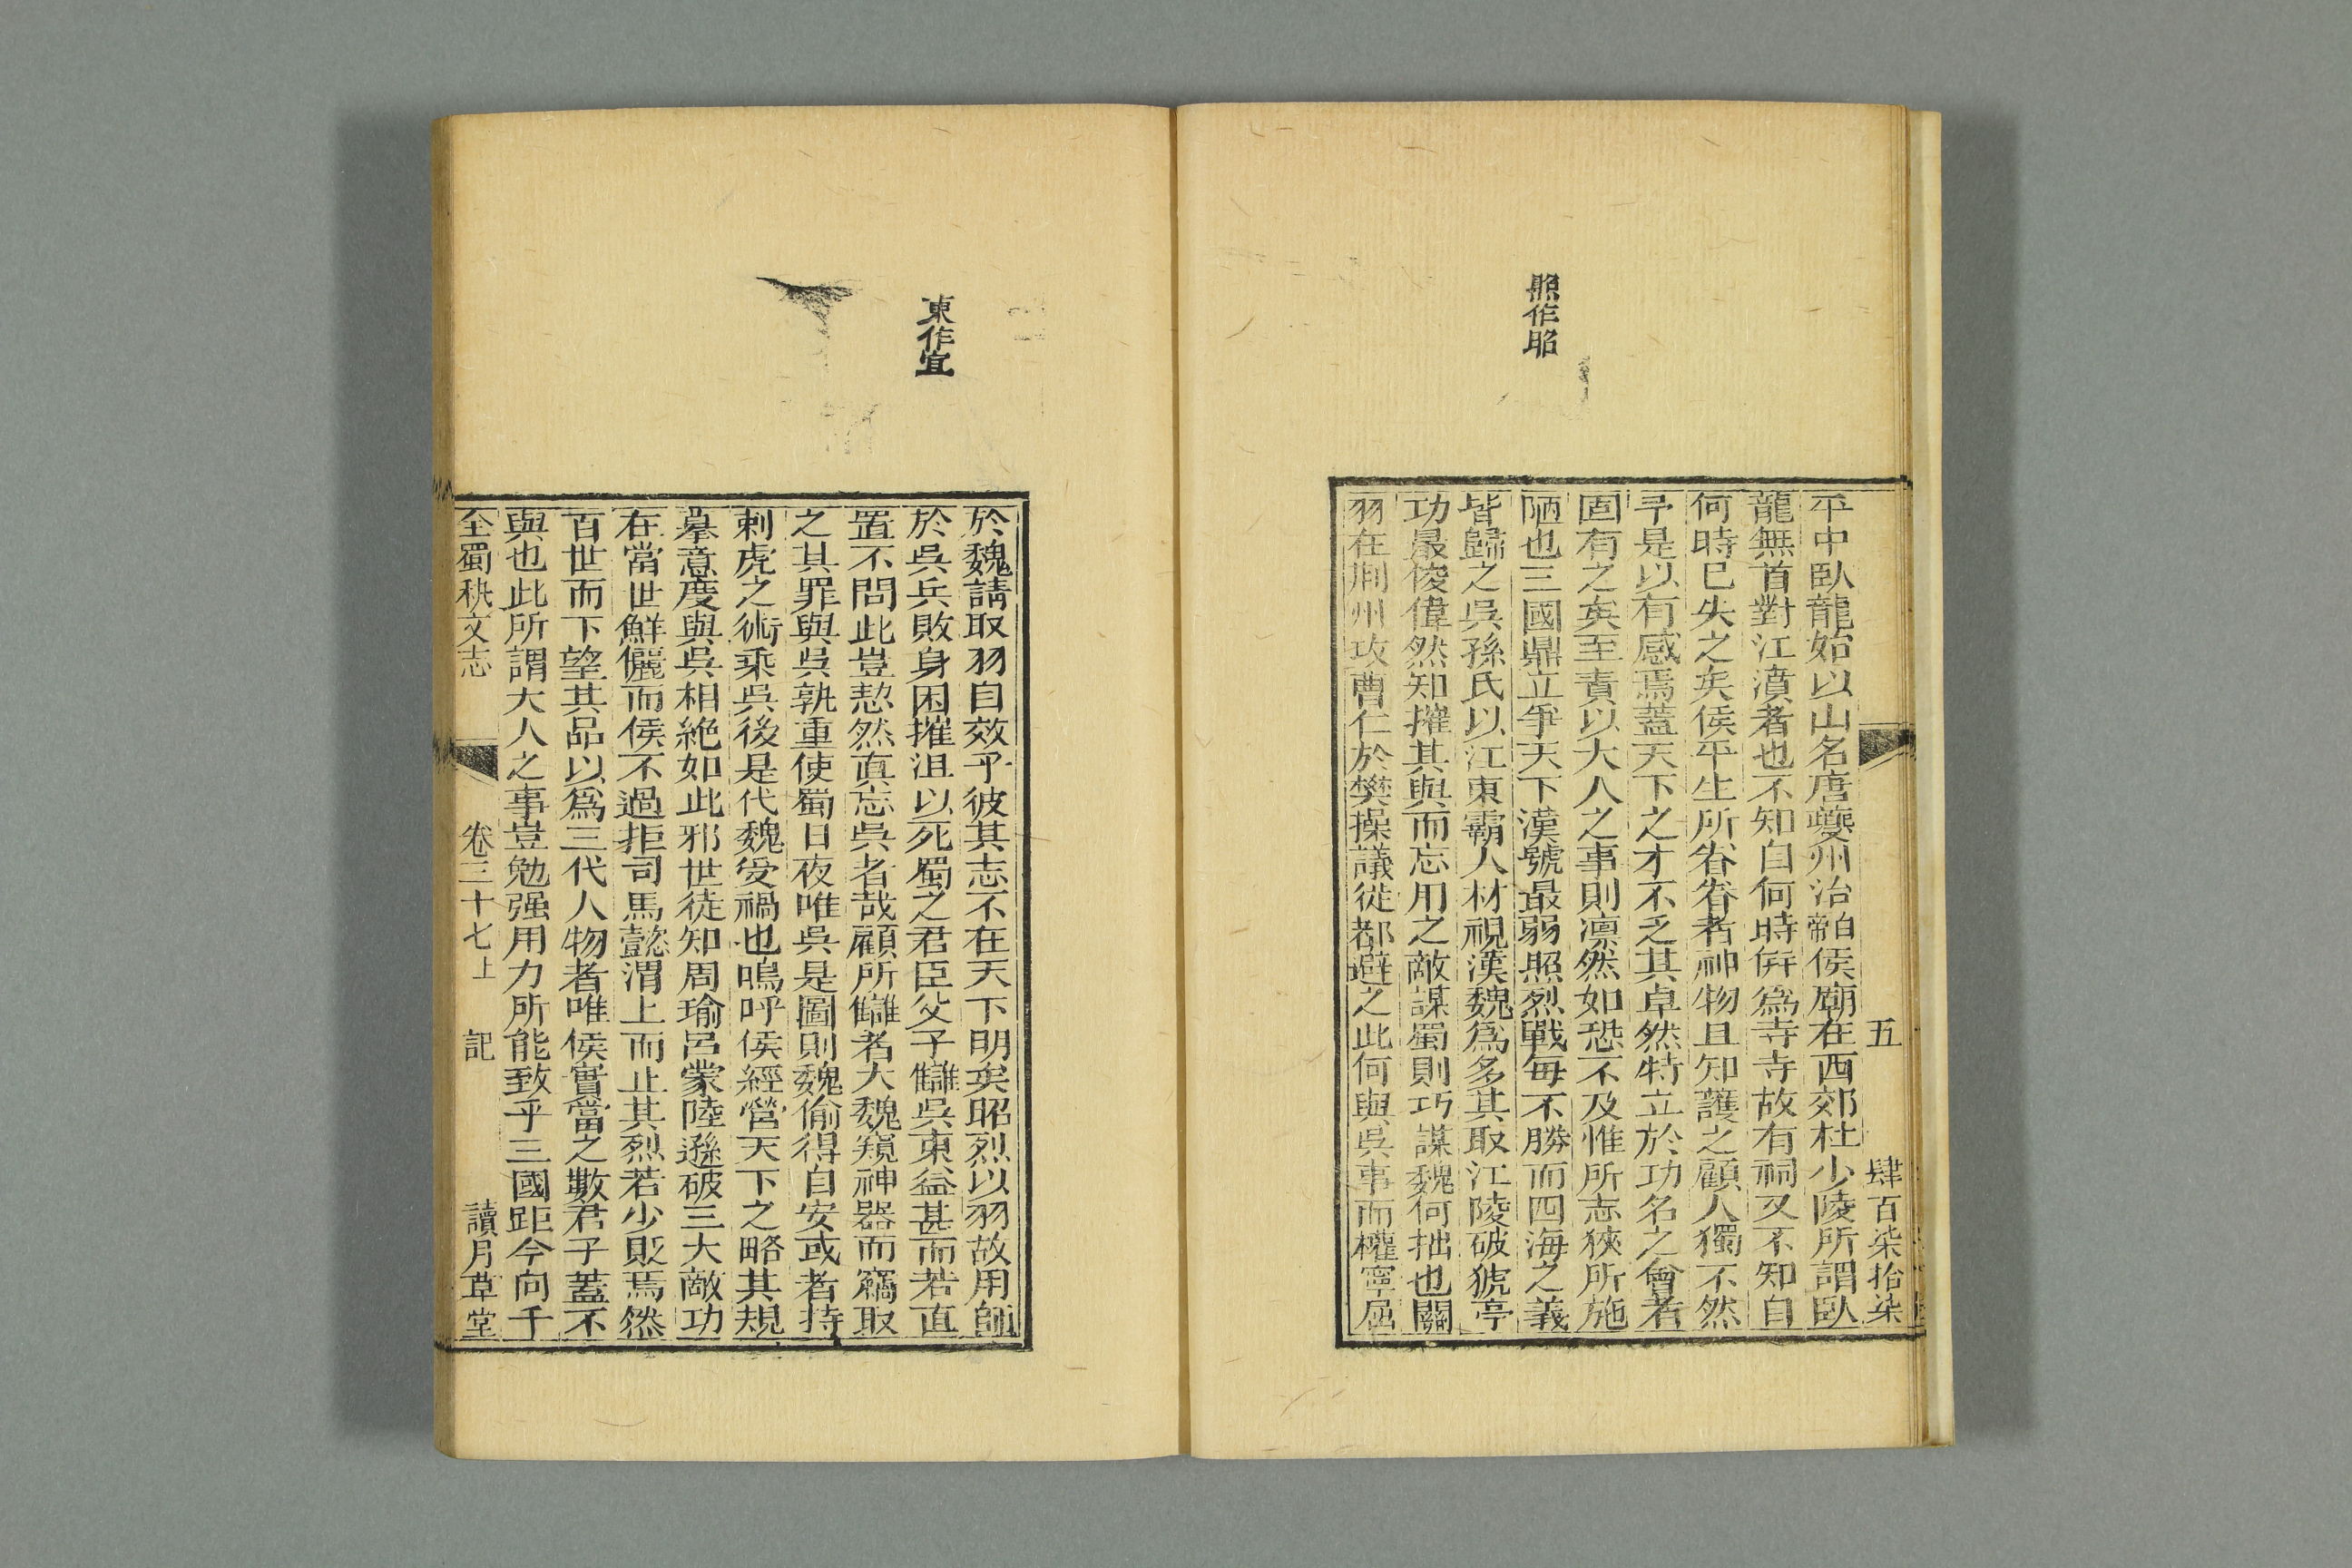 照作昭
五
肆百柒拾柒
平中臥龍始以山名唐夔州治白帝侯廟在西郊杜少陵所謂臥
龍無首對江濆者也不知自何時併為寺寺故有祠又不知自
何時已失之矣侯平生所眷眷者神物且知護之顧人獨不然
乎是以有感焉蓋天下之才不乏其卓然特立於功名之會者
固有之矣至責以大人之事則凛然如恐不及惟所志狹所施
陋也三國鼎立爭天下漢號最弱照烈戰每不勝而四海之義
皆歸之吳孫氏以江東霸人材視漢魏爲多其取江陵破猇亭
功最俊偉然知摧其與而忘用之敵謀蜀則巧謀魏何拙也關
羽在荆州攻曹仁於樊操議徙都避之此何與吳事而權寧屈
東作宜
於魏請取羽自效乎彼其志不在天下明矣昭烈以羽故用師
於吳兵敗身困摧沮以死蜀之君臣父子讎吳東益甚而若直
置不問此豈恝然真忘吳者哉顧所讎者大魏窺神器而竊取
之其罪與吳孰重使蜀日夜唯吳是圖則魏偷得自安或者持
刺虎之術乘吳後是代魏受禍也嗚呼侯經營天下之略其規
摹意度與吳相絶如此邪世徒知周瑜呂蒙陸遜破三大敵功
在當世鮮儷而侯不過拒司馬懿渭上而止其烈若少貶焉然
百世而下望其品以爲三代人物者唯侯實當之數君子蓋不
與也此所謂大人之事豈勉强用力所能致乎三國距今向千
全蜀秇文志
卷三十七上
記
讀月草堂